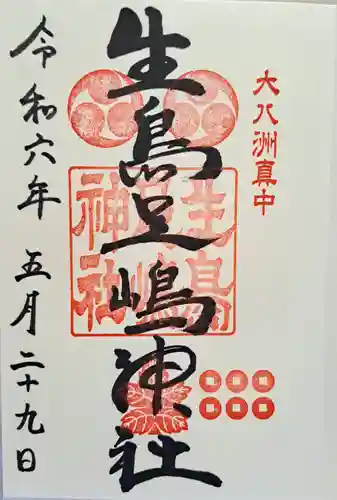 大八洲真中
生島足嶋神社
生島足嶋神社
令和六年 五月二十九日